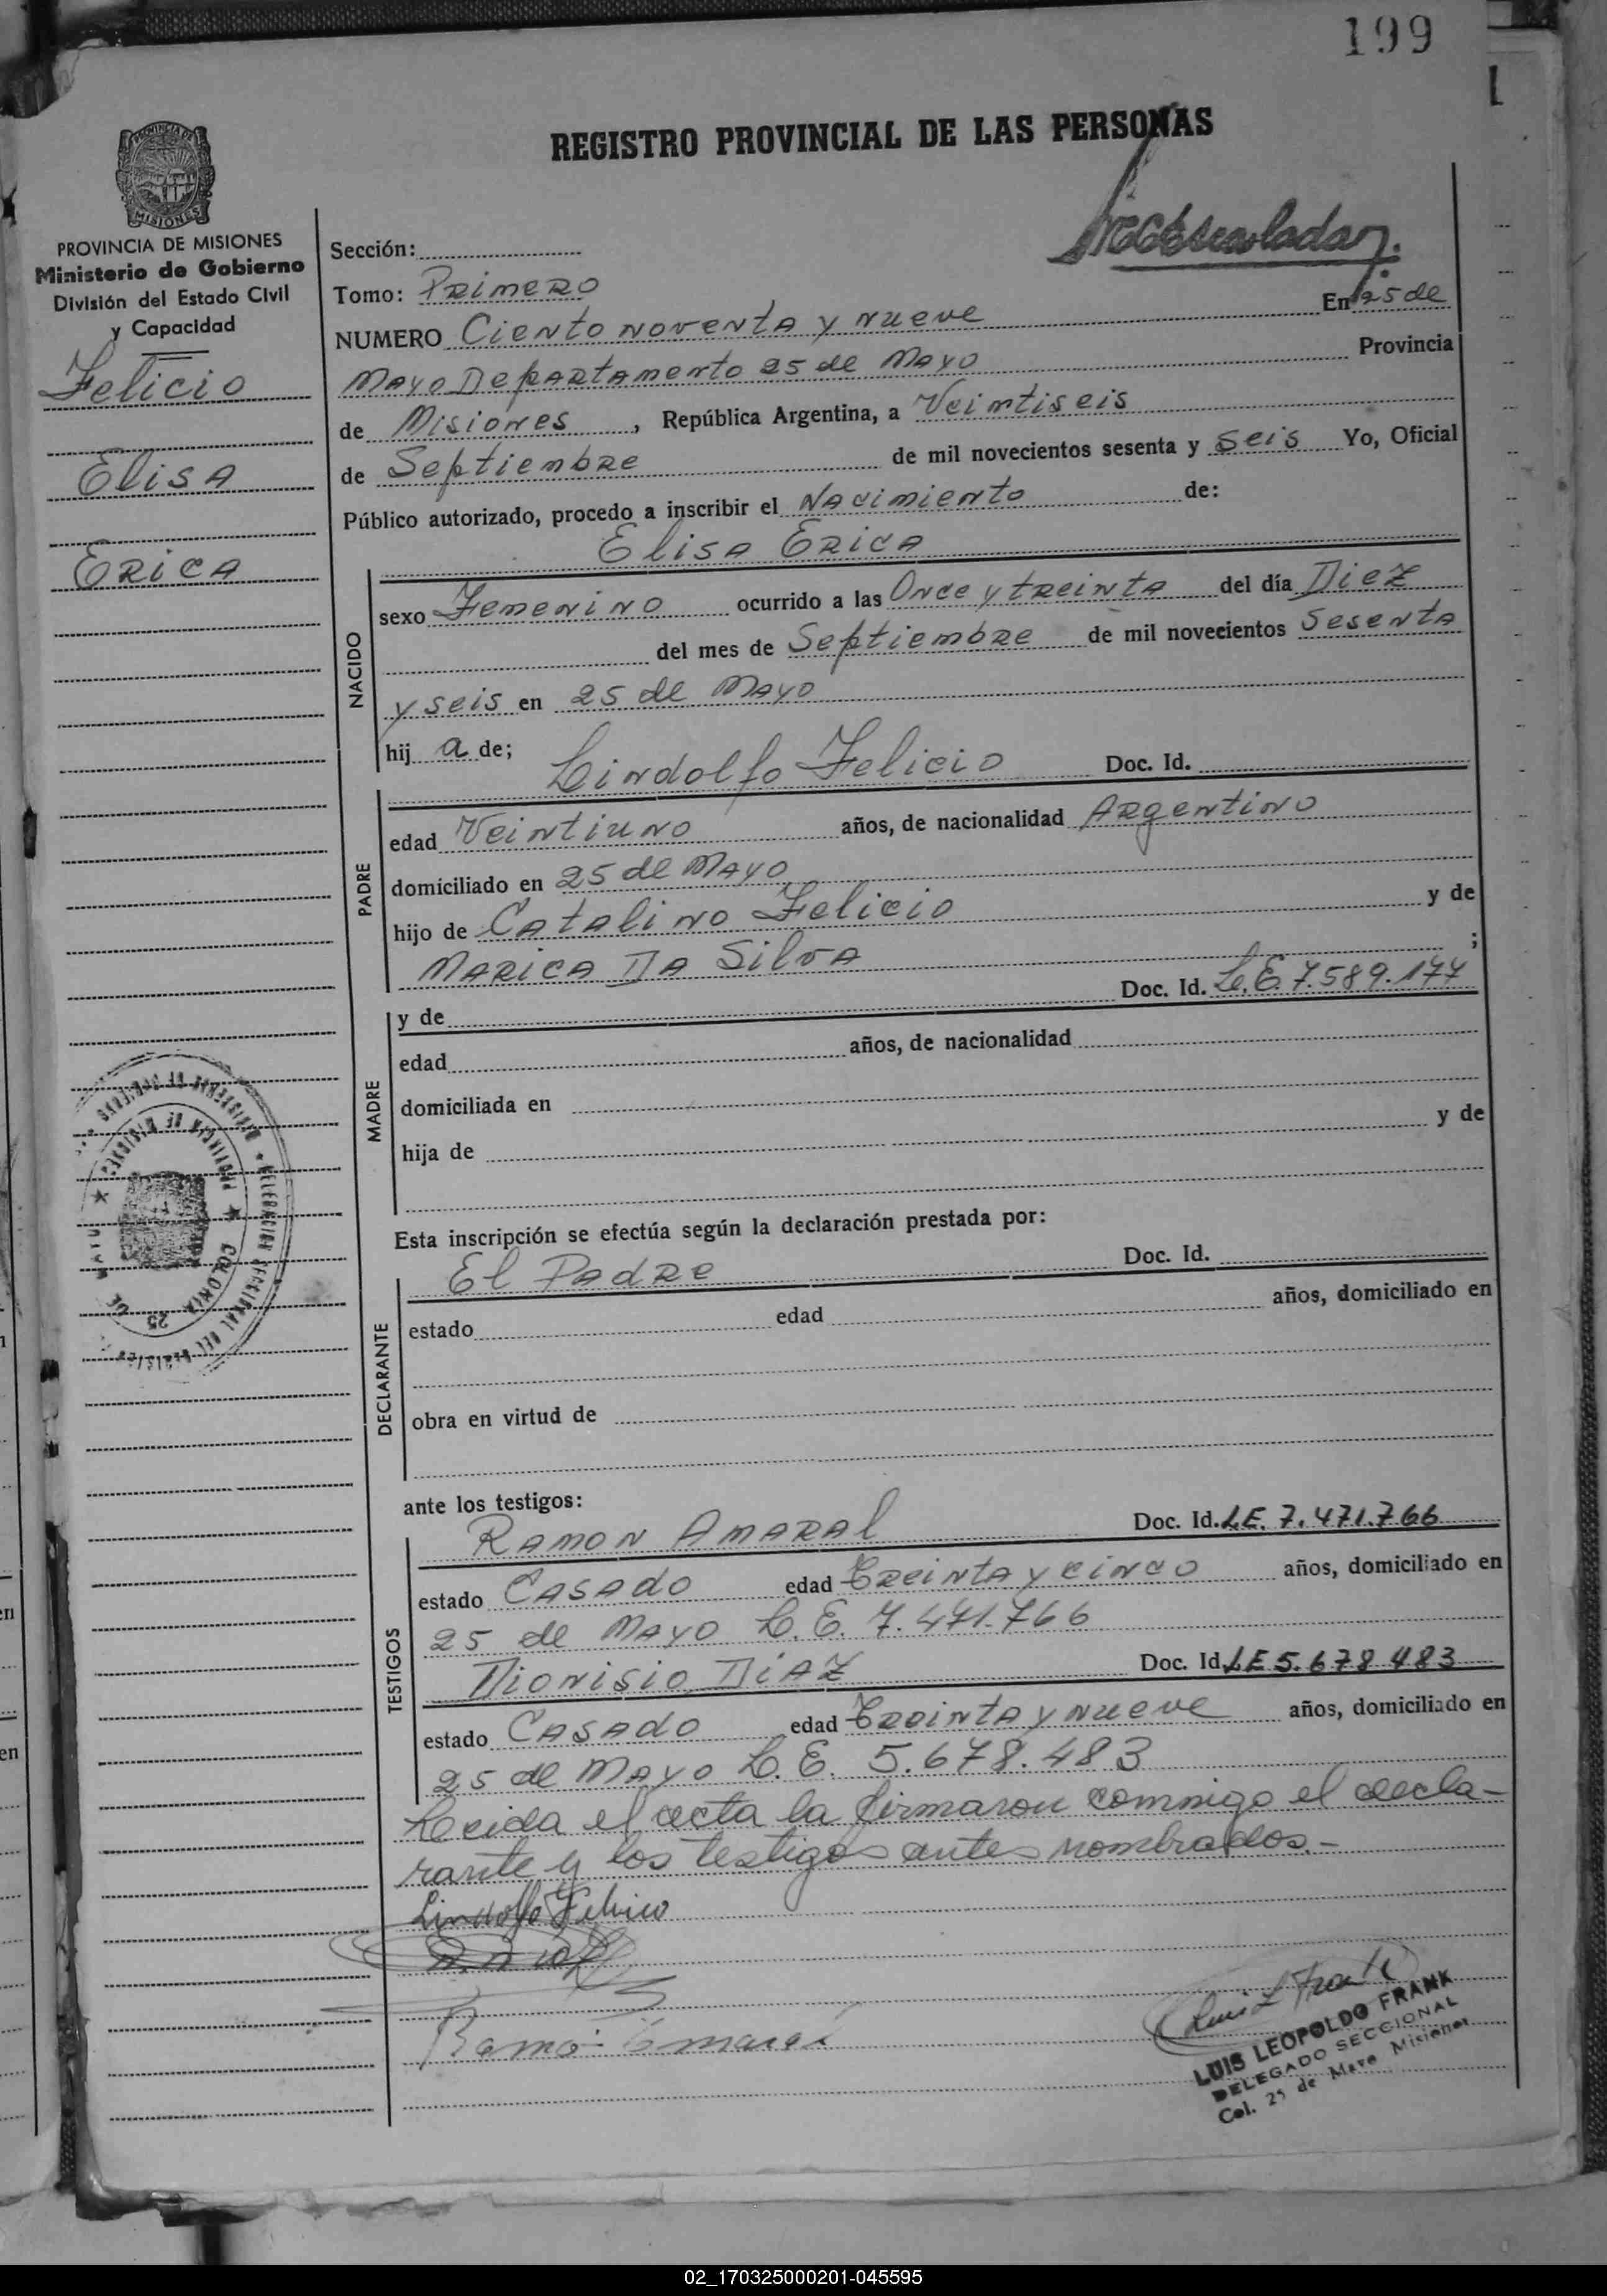 199
REGISTRO PROVINCIAL DE LAS PERSONAS
PROVINCIA DE
MISIONES
PROVINCIA DE MISIONES
Ministerio de Gobierno
División del Estado Civil
y Capacidad
Felicio
Elisa
Erica
Sección:
Tomo: Primero
NUMERO Ciento noventa y nueve En 25 de
Mayo Departamento 25 de Mayo Provincia
de Misiones, República Argentina, a Veintiseis
de Septiembre de mil novecientos sesenta y seis Yo, Oficial
Público autorizado, procedo a inscribir el Nacimiento de:
Elisa Erica
NACIDO
sexo Femenino ocurrido a las Once y treinta del día Diez
del mes de Septiembre de mil novecientos Sesenta
y seis en 25 de Mayo
hij a de;
Lindolfo Felicio Doc. Id.
PADRE
edad Veintiuno años, de nacionalidad Argentino
domiciliado en 25 de Mayo
hijo de Catalino Felicio y de
Marica Da Silva ;
y de Doc. Id. L.E. 7.589.177
MADRE
edad años, de nacionalidad
domiciliada en
hija de y de
Esta inscripción se efectúa según la declaración prestada por:
El Padre Doc. Id.
DECLARANTE
estado edad años, domiciliado en
obra en virtud de
ante los testigos:
Ramon Amaral Doc. Id. LE. 7.471.766
TESTIGOS
estado Casado edad Treinta y cinco años, domiciliado en
25 de Mayo L.E. 7.471.766
Dionisio Diaz Doc. Id LE 5.678 483
estado Casado edad Treinta y nueve años, domiciliado en
25 de Mayo L.E. 5.678.483
Leida el acta la firmaron conmigo el decla-
rante y los testigos antes nombrados.-
Lindolfo Felicio
LUIS LEOPOLDO FRANK
DELEGADO SECCIONAL
Col. 25 de Mayo Misiones
PROVINCIA DE MISIONES
COLONIA 25 DE MAYO
02_170325000201-045595